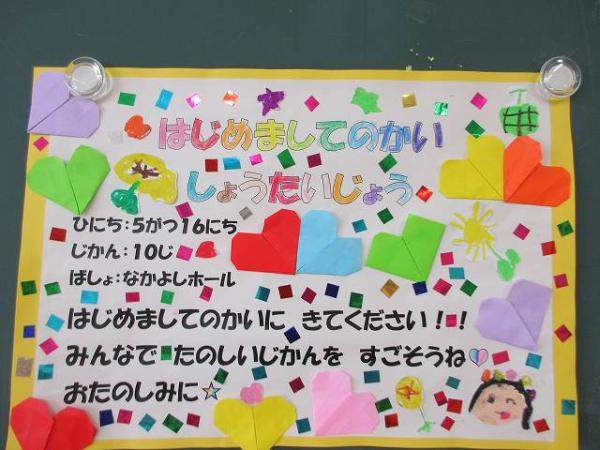 はじめましてのかい
しょうたいじょう
ひにち：5がつ16にち
じかん：10じ
ばしょ：なかよしホール
はじめましてのかいに きてください！！
みんなで たのしいじかんを すごそうね
おたのしみに☆